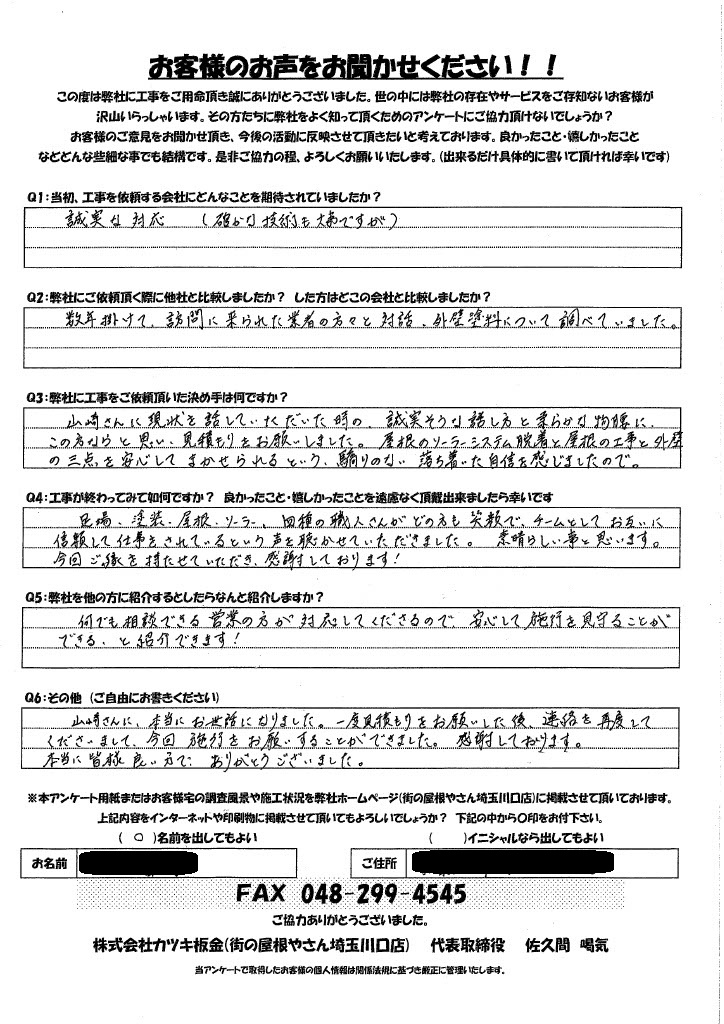 お客様のお声をお聞かせください！！
この度は弊社に工事をご用命頂き誠にありがとうございました。世の中には弊社の存在やサービスをご存知ないお客様が
沢山いらっしゃいます。その方たちに弊社をよく知って頂くためのアンケートにご協力頂けないでしょうか？
お客様のご意見をお聞かせ頂き、今後の活動に反映させて頂きたいと考えております。良かったこと・嬉しかったこと
などどんな些細な事でも結構です。是非ご協力の程、よろしくお願いいたします。（出来るだけ具体的に書いて頂ければ幸いです）
Q1：当初、工事を依頼する会社にどんなことを期待されていましたか？
誠実な対応　（確かな技術も大事ですが）
Q2：弊社にご依頼頂く際に他社と比較しましたか？　した方はどこの会社と比較しましたか？
数年掛けて、訪問に来られた業者の方々と対話、外壁塗料について調べていました。
Q3：弊社に工事をご依頼頂いた決め手は何ですか？
山崎さんに現状を話していただいた時の、誠実そうな話し方と柔らかな物腰に、
この方ならと思い、見積もりをお願いしました。屋根のソーラーシステム脱着と屋根の工事と外壁
の三点を安心してまかせられるという、驕りのない落ち着いた自信を感じましたので。
Q4：工事が終わってみて如何ですか？　良かったこと・嬉しかったことを遠慮なく頂戴出来ましたら幸いです
足場、塗装、屋根、ソーラー、四種の職人さんがどの方も笑顔で、チームとしてお互いに
信頼して仕事をされているという声を聴かせていただきました。素晴らしい事と思います。
今回ご縁を持たせていただき、感謝しております！
Q5：弊社を他の方に紹介するとしたらなんと紹介しますか？
何でも相談できる営業の方が対応してくださるので、安心して施行を見守ることが
できる、と紹介できます！
Q6：その他（ご自由にお書きください）
山崎さんに、本当にお世話になりました。一度見積もりをお願いした後、連絡を再度して
くださいまして、今回施行をお願いすることができました。感謝しております。
本当に皆様良い方で、ありがとうございました。
※本アンケート用紙またはお客様宅の調査風景や施工状況を弊社ホームページ（街の屋根やさん埼玉川口店）に掲載させて頂いております。
上記内容をインターネットや印刷物に掲載させて頂いてもよろしいでしょうか？　下記の中から○印をお付下さい。
（　○　）名前を出してもよい　（　　）イニシャルなら出してもよい
お名前　ご住所
FAX 048-299-4545
ご協力ありがとうございました。
株式会社カツキ板金（街の屋根やさん埼玉川口店）　代表取締役　佐久間　喝気
当アンケートで取得したお客様の個人情報は関係法規に基づき厳正に管理いたします。